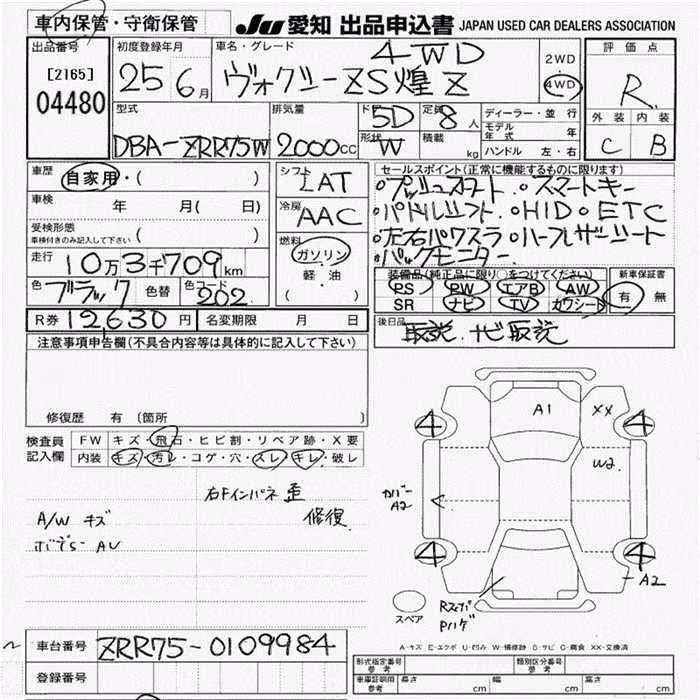 車内保管・守衛保管
JU 愛知 出品申込書 JAPAN USED CAR DEALERS ASSOCIATION
出品番号 初度登録年月 車名・グレード 評価点
[2165]
04480
25 6月
4WD
ヴォクシーZS煌Z
2WD
4WD
R
外装 内装
C B
型式 排気量 ドア 定員 ディーラー・並行
DBA-ZRR75W 2000cc 5D 8人
形状 W 積載 kg
モデル年式 年
ハンドル 左・右
車歴 自家用・( )
車検 年 月( 日)
受検形態 ( )
車検付きのみ記入して下さい
走行 10万3千709km
色 ブラック 色替 色コード 202
シフト IAT
冷房 AAC
燃料 ガソリン
軽・油
( )
セールスポイント(正常に機能するものに限ります)
○プッシュスタート.○スマートキー
○パドルシフト.○HID○ETC
○左右パワスラ○ハーフレザーシート
○バックモニター
装備品(純正品に限り○をつけてください) 新車保証書
PS PW エアB AW
SR ナビ TV カワシート
有 無
R券 12630円 名変期限 月 日
後日品
取説.ナビ取説
注意事項申告欄(不具合内容等は具体的に記入して下さい)
修復歴 有 〔箇所 〕
検査員記入欄
FW キズ・飛石・ヒビ割・リペア跡・X要
内装 キズ・汚レ・コゲ・穴・スレ・キレ・破レ
右Fインパネ 歪
修復
A/W キズ
ボデー AU
A1 XX
4 4
W2.
カバー
A2
4 4
A2
スペア
Rスパナ
Pハゲ
A-キズ E-エクボ U-凹み W-補修跡 S-サビ C-腐食 XX-交換済
車台番号 ZRR75-0109984
登録番号
型式指定番号 参考 類別区分番号 参考
車庫証明用 参考 長さ cm 幅 cm 高さ cm